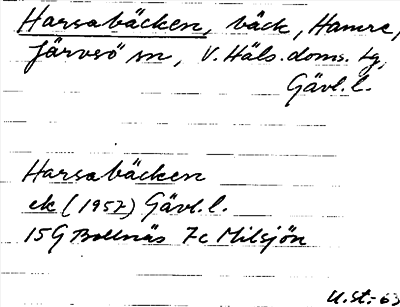 Harsabäcken, bäck, Hamre,
Järvsö sn, V. Häls. doms. tg,
Gävl.l.
Harsabäcken
ek (1957) Gävl.l.
15G Bollnäs 7c Milsjön
U.st.-63